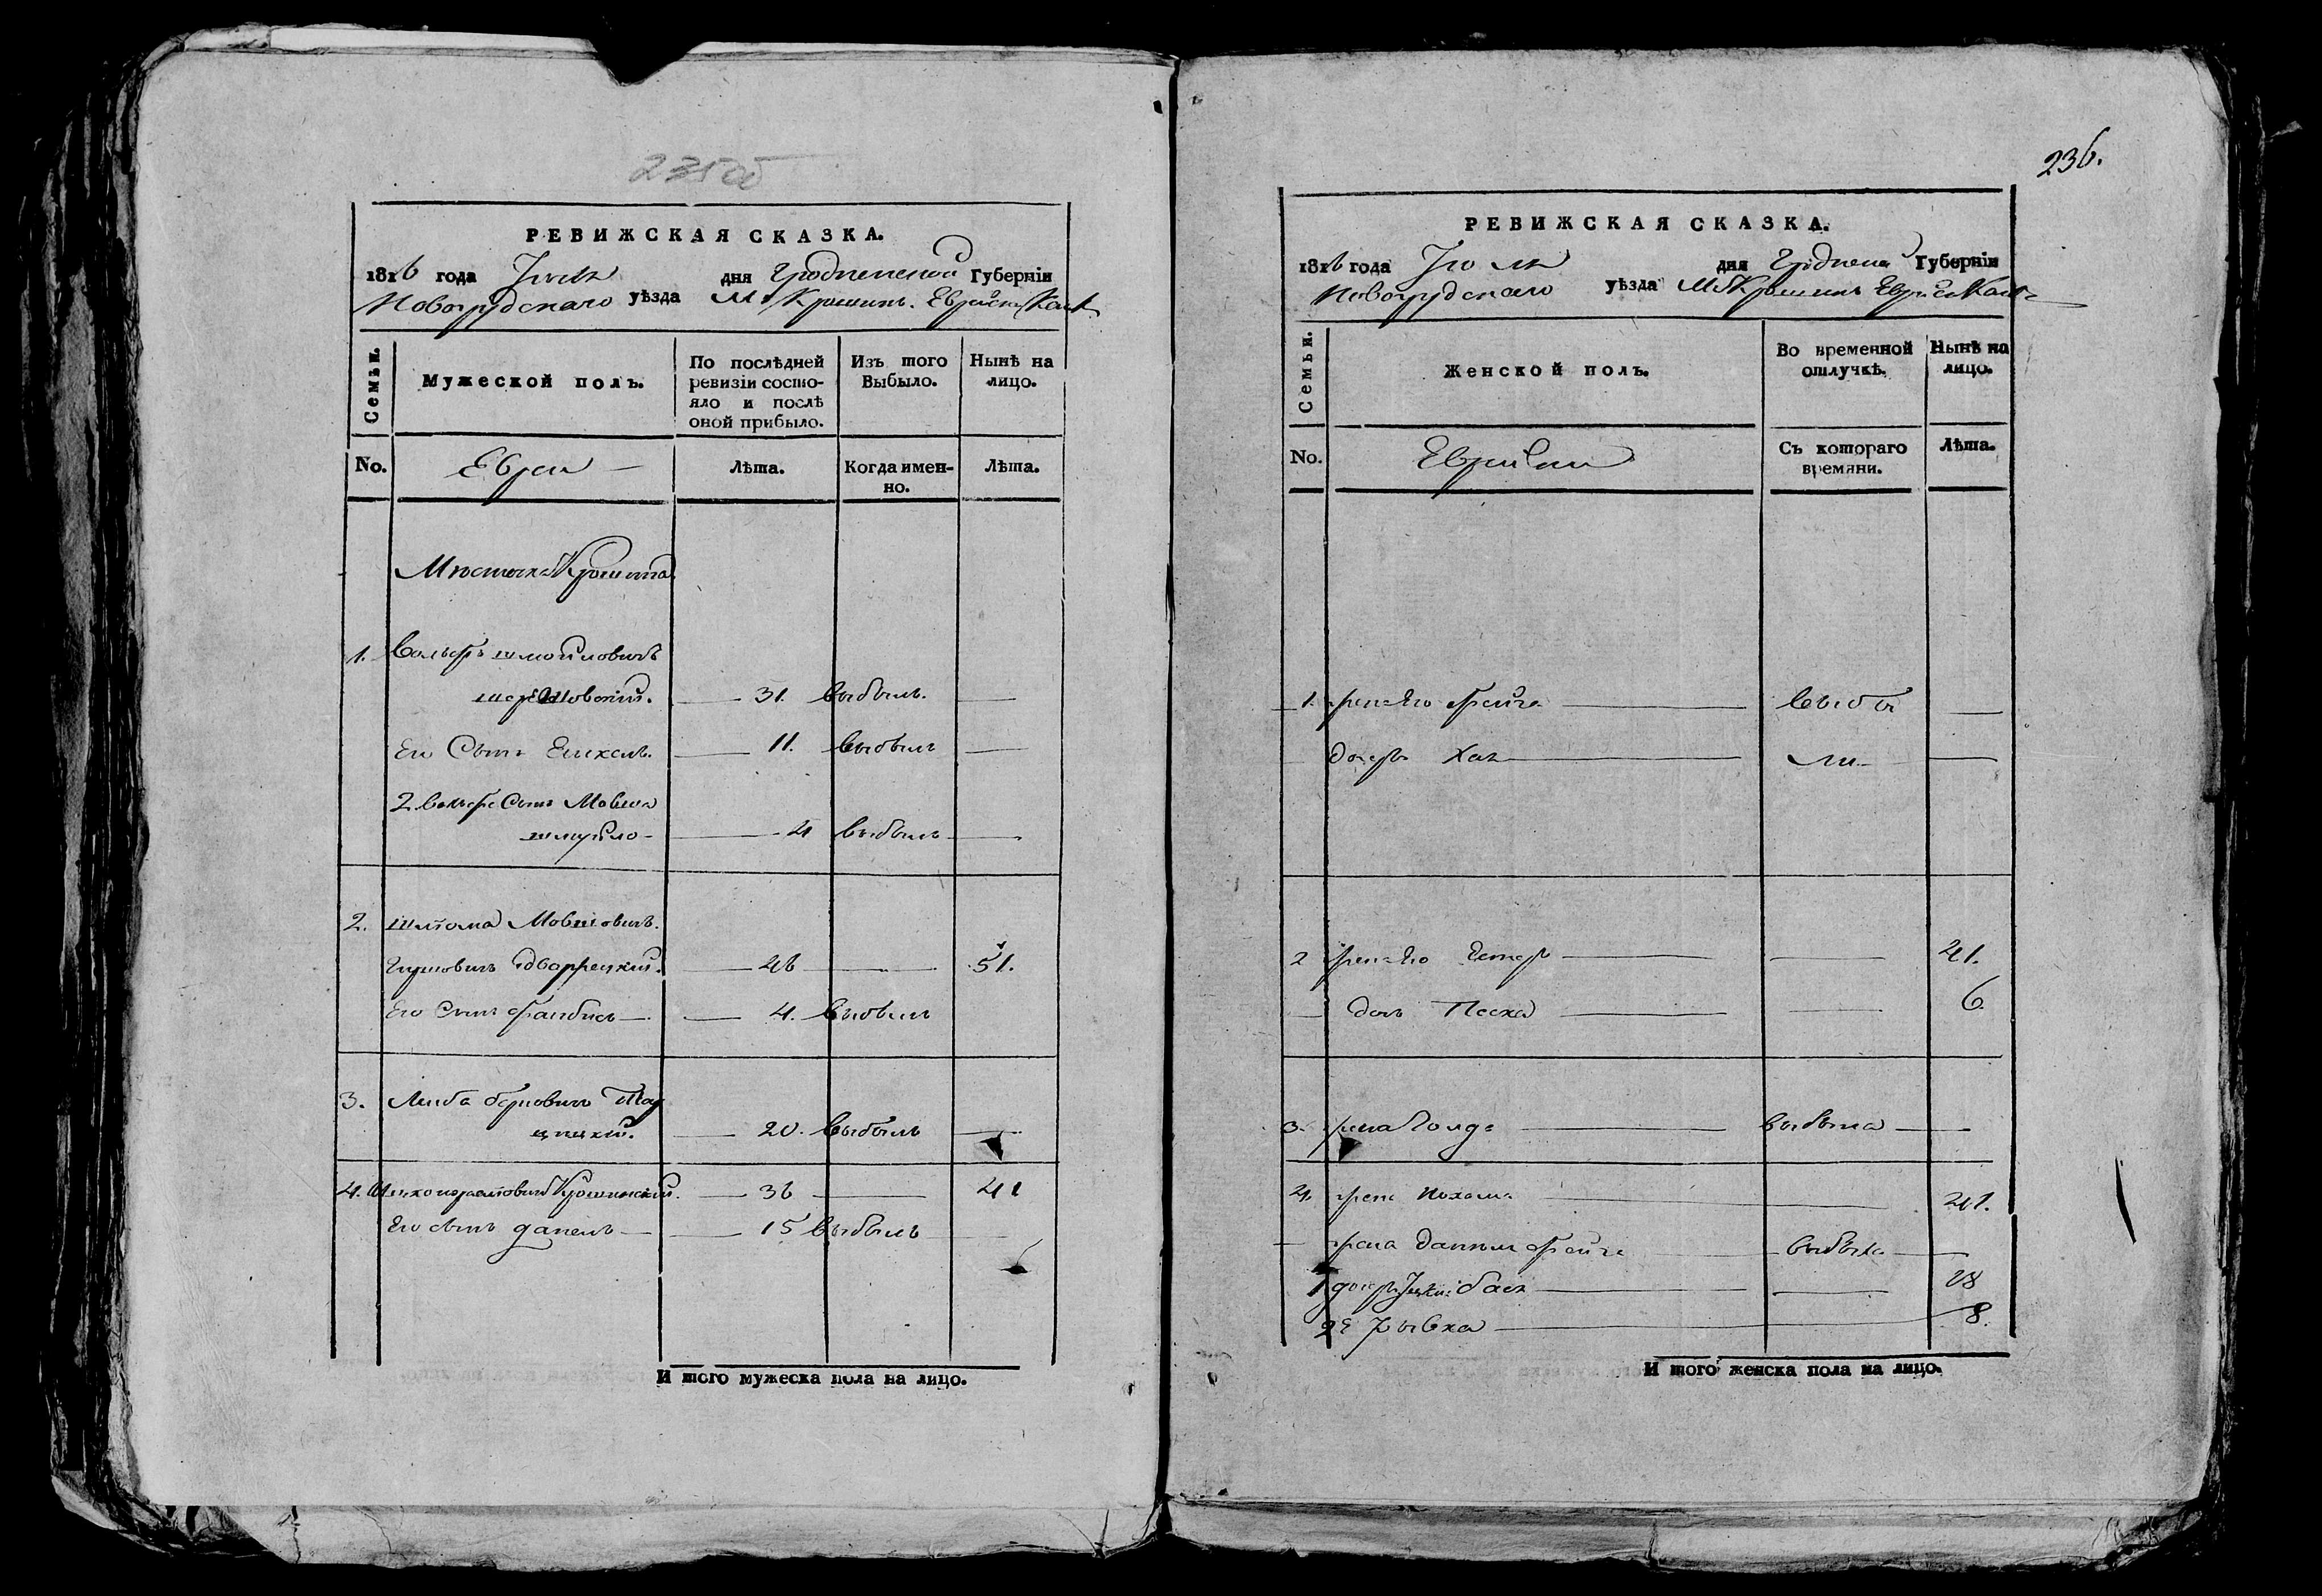 235об
РЕВИЖСКАЯ СКАЗКА.
1816 года Июля дня Гродненской Губерніи
Новогрудскаго уѣзда М. Крошинъ. Еврейск
Семьи.
Мужеской полъ.
По послѣдней ревизіи состо-
яло и послѣ
оной прибыло.
Изъ того
Выбыло.
Нынѣ на
лицо.
No.
Евреи
Лѣта.
Когда имен-
но.
Лѣта.
Мѣстечка Крошина
1. Вольфъ Шмойловичъ
Шерешовскій. 31. выбылъ. —
Его Сынъ Епхель. 11. выбылъ —
2. Вольфа Сынъ Мовша
Шмуйло — 4 выбылъ —
2. Шліома Мовшовичъ.
Гиршовичъ Дворжецкій. 46 — 51.
Его Сынъ Файбисъ — 4. выбылъ
3. Лейба Берковичъ
20. выбылъ —
4. Крошинскій. 36 — 41
Его сынъ Данель — 15 выбылъ —
И того мужеска пола на лицо.
236.
РЕВИЖСКАЯ СКАЗКА.
1816 года Июля дня Гроднен Губерніи
Новогрудскаго уѣзда М. Крошинъ
Семьи.
Женской полъ.
Во временной
отлучкѣ.
Нынѣ на
лицо.
No.
Еврейки
Съ котораго
времяни.
Лѣта.
1. жена его Фейга — выбы —
дочерь Хая — ли —
2 жена его Естеръ — — 41.
дочь Песка — — 6
3. жена Голда — выбыла —
4. жена Нохама — 41.
жена Данеля Фейга — выбыла —
1 дочерь Бася — — 18
2я Рывка — 8.
И того женска пола на лицо.